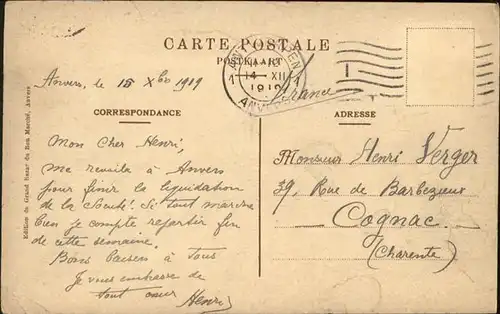 CARTE POSTALE
POSTKAART
1 1
14 XII
1919
ANVERS
France
Anvers, le 15 Xbre 1919
CORRESPONDANCE
Mon Cher Henri,
me revoilà à Anvers
pour finir la liquidation
de la Société! Si tout marche
bien je compte repartir fin
de cette semaine.
Bons Baisers à Tous
Je vous embrasse de
tout cœur Henri
ADRESSE
Monsieur Henri Verger
39, Rue de Barbezieux
Cognac
(Charente)
Edition du Grand Bazar du Bon Marché, Anvers